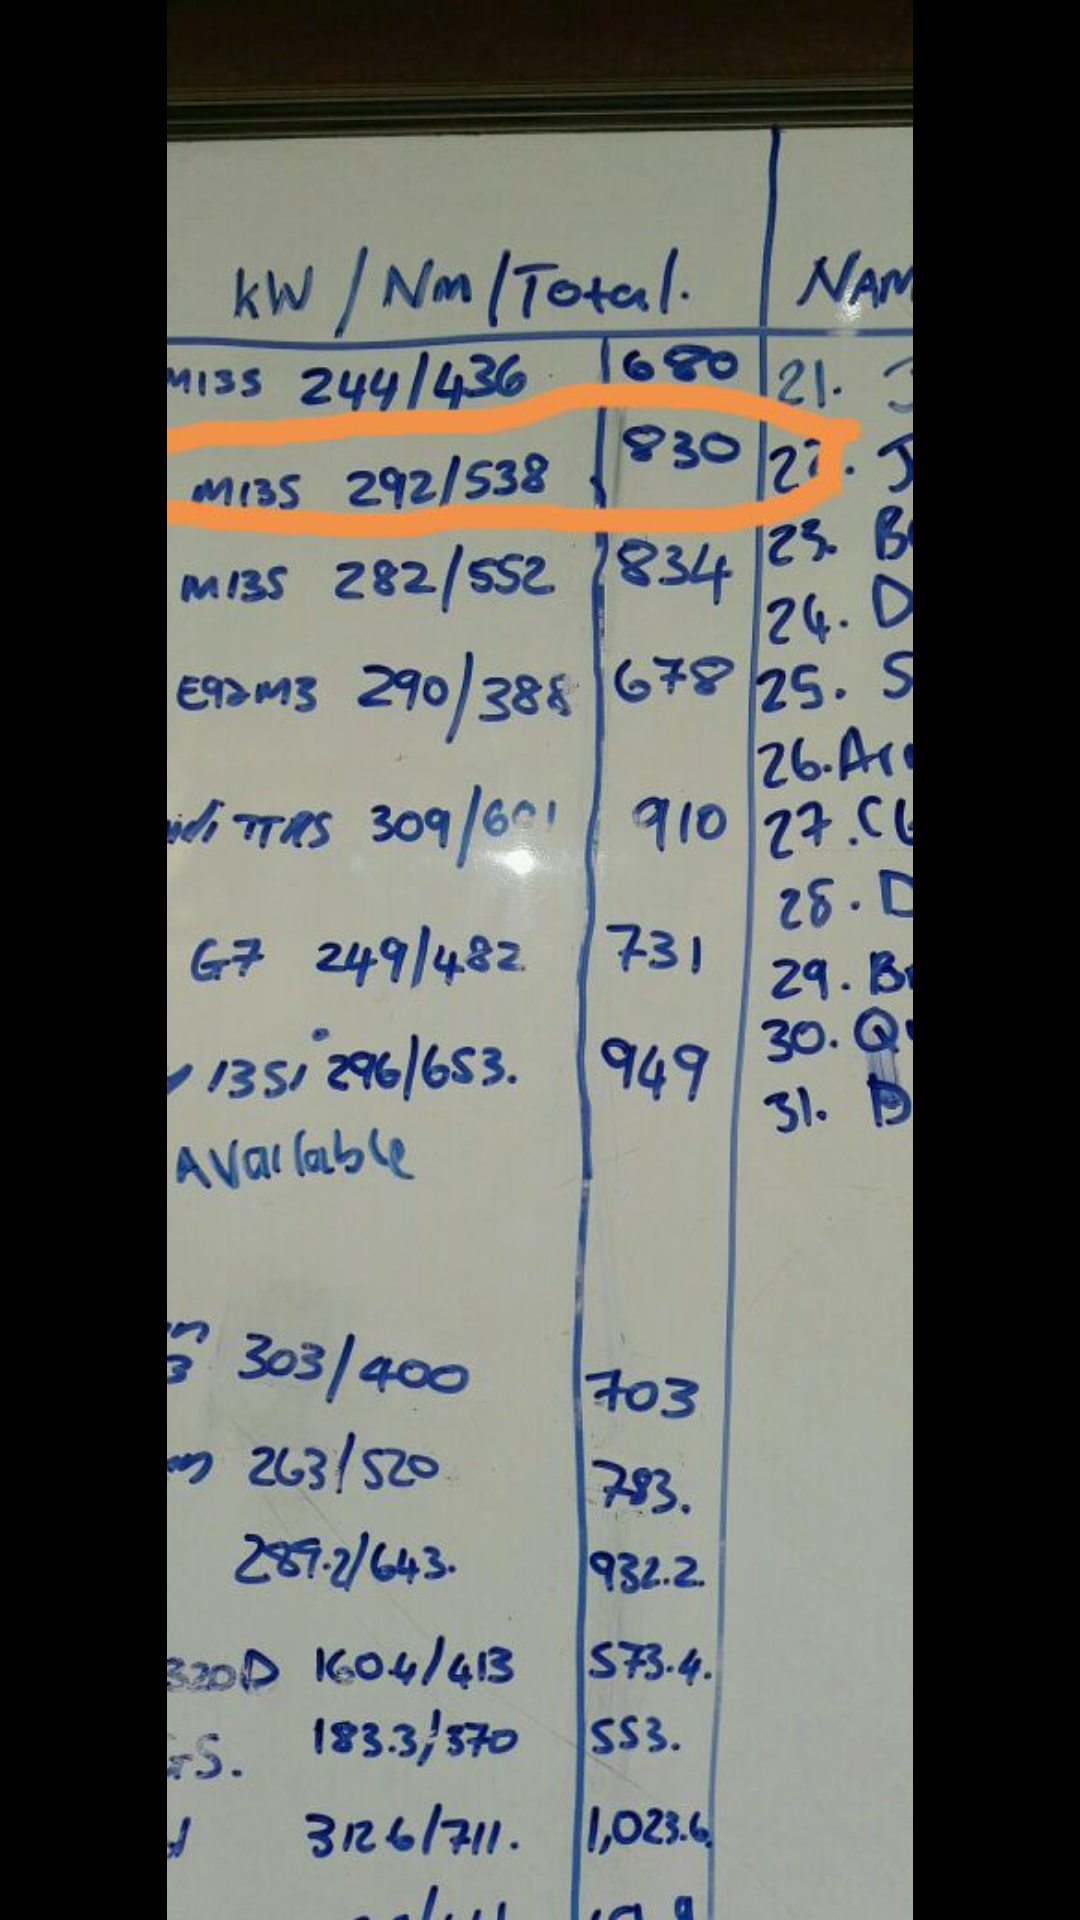 kW / Nm / Total. NAM
M135 244/436 680 21. J
M135 292/538 830 22. J
M135 282/552 834 23. B
24. D
E92M3 290/388 678 25. S
26.
TTRS 309/601 910 27. CL
28. D
G7 249/482 731 29. B
135i 296/653. 949 30. Q
Available 31. D
3 303/400 703
263/520 783.
289.2/643. 932.2.
320D 160.4/413 573.4.
GS. 183.3/370 553.
312.6/711. 1,023.6